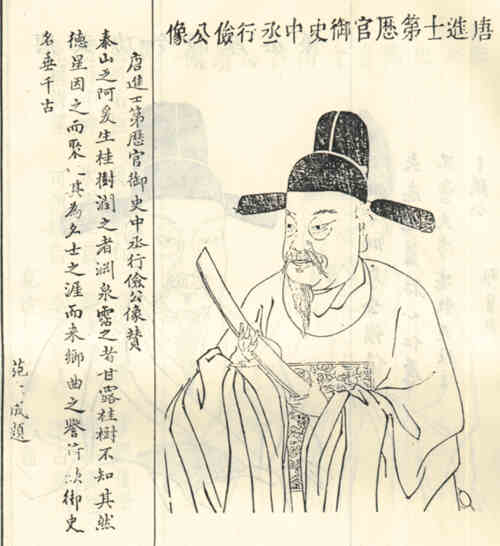 唐進士第厯官御史中丞行儉公像
唐進士第厯官御史中丞行儉公像贊
泰山之阿爰生桂樹潤之者淵泉霑之者甘露桂樹不知其然
德星因之而聚其為士之涯而來鄉曲之譽御史
名垂千古
成題